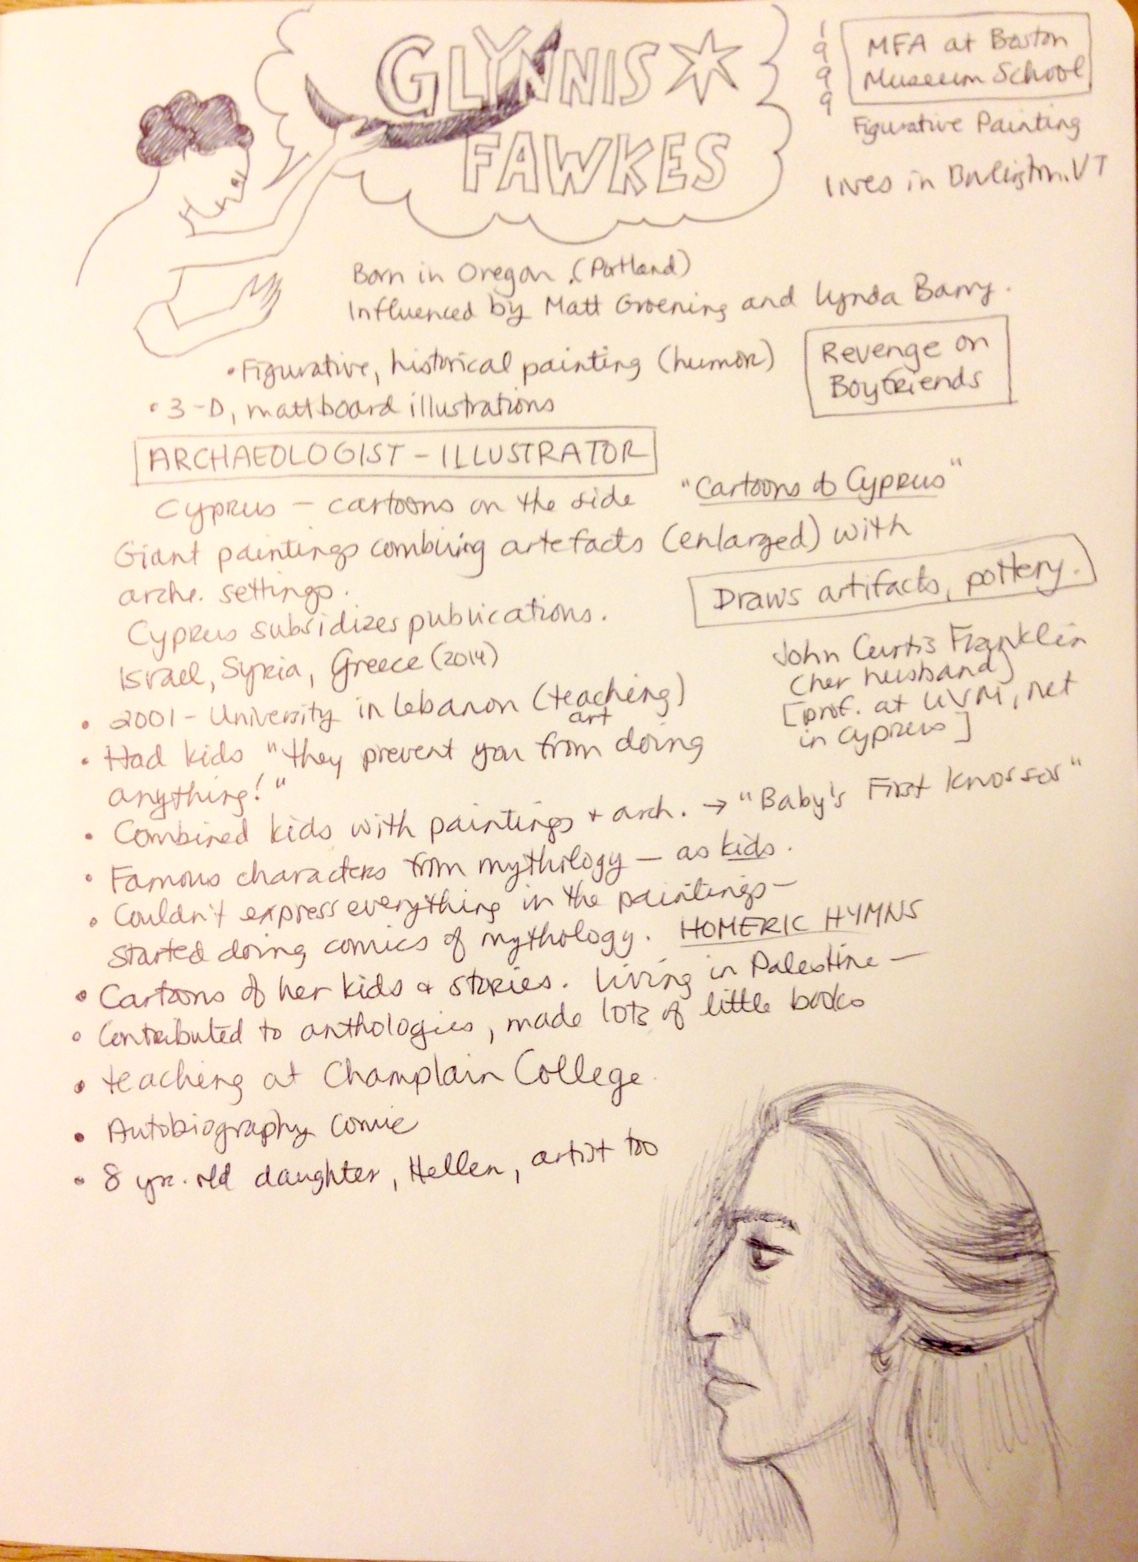 GLYNNIS
FAWKES
1999
MFA at Boston
Museum School
Figurative Painting
lives in Burlington, VT
Born in Oregon (Portland)
Influenced by Matt Groening and Lynda Barry.
• Figurative, historical painting (humor)
• 3-D, mattboard illustrations
Revenge on
Boyfriends
ARCHAEOLOGIST - ILLUSTRATOR
Cyprus - cartoons on the side "Cartoons of Cyprus"
Giant paintings combining artefacts (enlarged) with
arche. settings.
Draws artifacts, pottery.
Cyprus subsidizes publications.
Israel, Syria, Greece (2014)
John Curtis Franklin
(her husband)
[prof. at UVM, met
in Cyprus]
• 2001 - University in Lebanon (teaching)
art
• Had kids "they prevent you from doing
anything!"
• Combined kids with paintings + arch. → "Baby's First Knossos"
• Famous characters from mythology — as kids.
• Couldn't express everything in the paintings —
started doing comics of mythology. HOMERIC HYMNS
• Cartoons of her kids & stories. Living in Palestine —
• Contributed to anthologies, made lots of little books
• teaching at Champlain College
• Autobiography Comic
• 8 yr. old daughter, Hellen, artist too